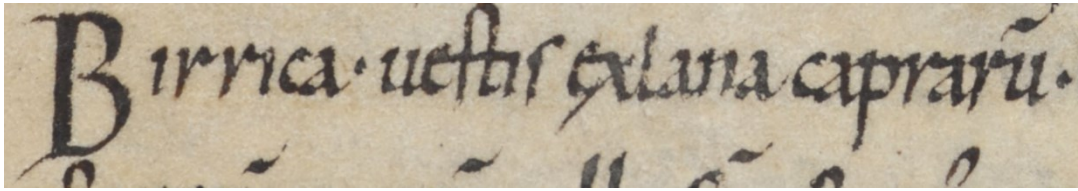 Birrica· ueſtiſ exlana caprarū·